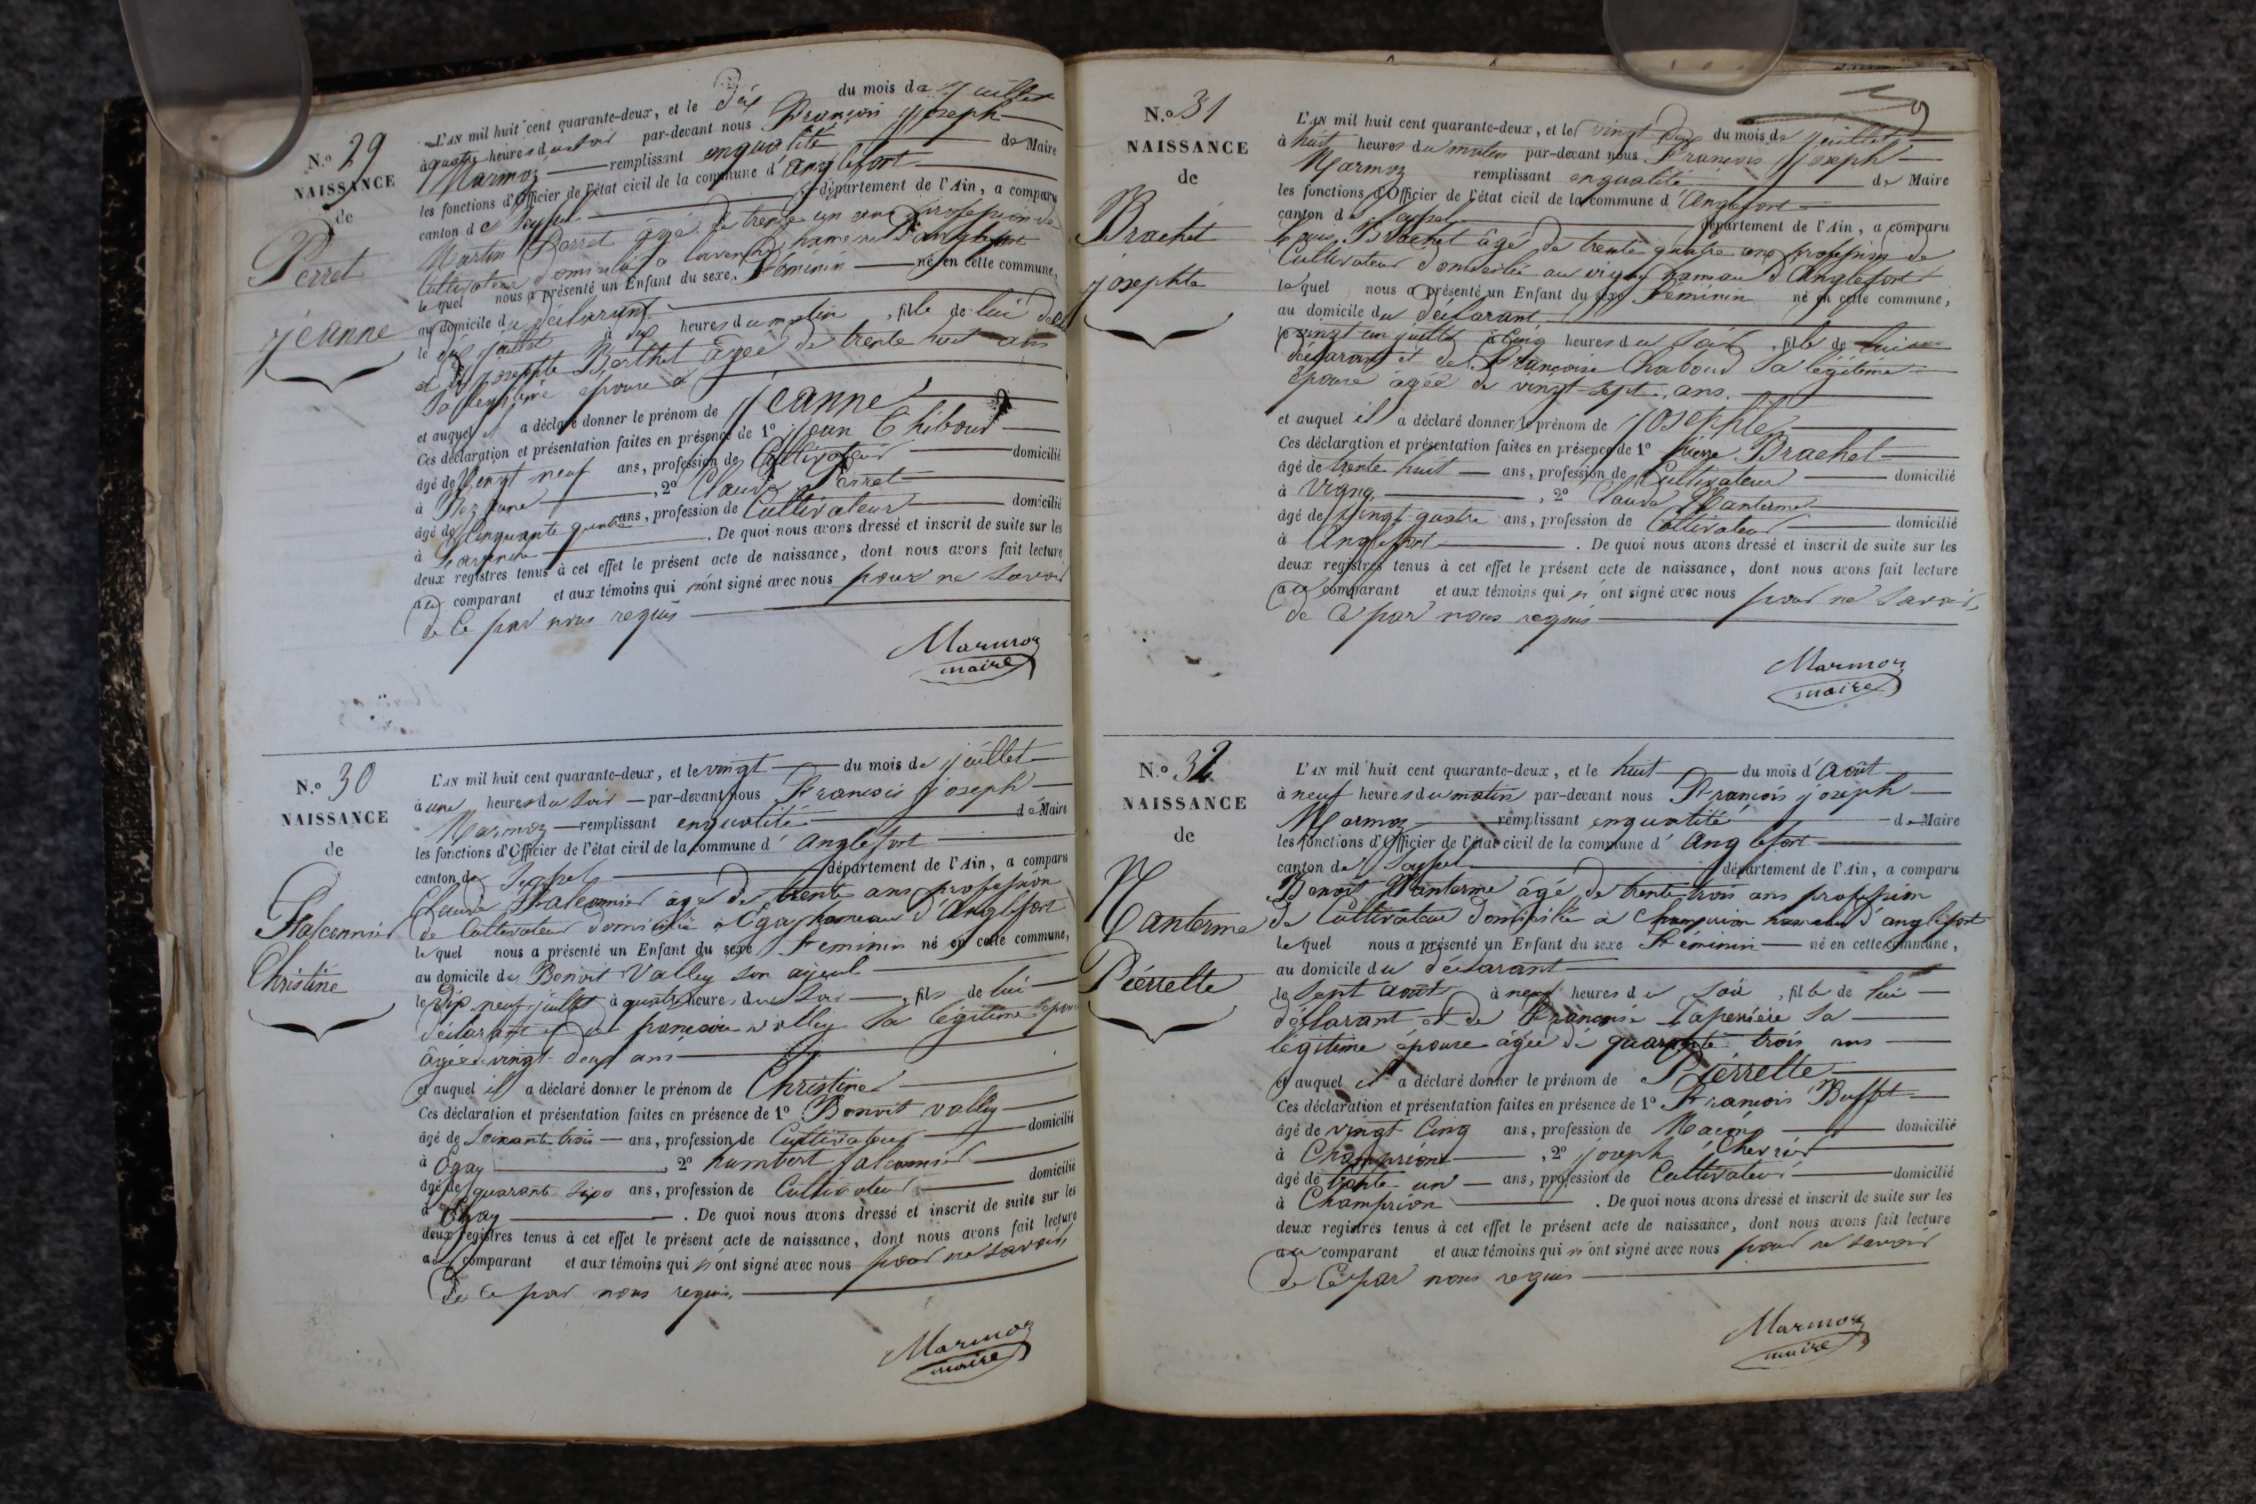 N.o 29
NAISSANCE
de
Perret
jeanne
L'AN mil huit cent quarante-deux, et le dix du mois de juillet
à quatre heures du soir par-devant nous François joseph
Marmoz remplissant enqualité de Maire
les fonctions d'Officier de l'état civil de la commune d'Anglefort
canton de Seyssel département de l'Ain, a comparu
Martin Perret âgé de trente un ans profession de
Cultivateur domicilié a hameau d'anglefort
le quel nous a présenté un Enfant du sexe Féminin né en cette commune,
au domicile du déclarant
le dix juillet à dix heures du matin, fille de lui
et de josephte Berthet âgée de trente huit ans
Sa légitime épouse
et auquel il a déclaré donner le prénom de jeanne
Ces déclaration et présentation faites en présence de 1o jean Thiboud
âgé de vingt neuf ans, profession de Cultivateur domicilié
à , 2o Claude Perret
âgé de Cinquante quatre ans, profession de Cultivateur domicilié
à . De quoi nous avons dressé et inscrit de suite sur les
deux registres tenus à cet effet le présent acte de naissance, dont nous avons fait lecture
au comparant et aux témoins qui n'ont signé avec nous pour ne savoir
de Ce par nous requis
Marmoz
maire
N.o 30
NAISSANCE
de
Falconnier
Christine
L'AN mil huit cent quarante-deux, et le vingt du mois de juillet
à une heures du soir par-devant nous François joseph
Marmoz remplissant enqualité de Maire
les fonctions d'Officier de l'état civil de la commune d'Anglefort
canton de Seyssel département de l'Ain, a comparu
Claude Falconnier âgé de trente ans profession
de Cultivateur domicilié a Ogay hameau d'Anglefort
le quel nous a présenté un Enfant du sexe Féminin né en cette commune,
au domicile du Benoit Valley son ayeul
le dix neuf juillet à quatre heures du soir, fils de lui
déclarant et de françoise Valley Sa légitime épouse
âgée de vingt deux ans
et auquel il a déclaré donner le prénom de Christine
Ces déclaration et présentation faites en présence de 1o Benoit Valley
âgé de Soixante trois ans, profession de Cultivateur domicilié
à Ogay, 2o humbert falconnier
âgé de quarante Six ans, profession de Cultivateur domicilié
à Ogay . De quoi nous avons dressé et inscrit de suite sur les
deux registres tenus à cet effet le présent acte de naissance, dont nous avons fait lecture
au comparant et aux témoins qui n'ont signé avec nous pour ne savoir
de Ce par nous requis
Marmoz
maire
N.o 31
NAISSANCE
de
Brachet
josephte
L'AN mil huit cent quarante-deux, et le vingt deux du mois de juillet
à huit heures du matin par-devant nous François joseph
Marmoz remplissant enqualité de Maire
les fonctions d'Officier de l'état civil de la commune d'Anglefort
canton de Seyssel département de l'Ain, a comparu
Louis Brachet âgé de trente quatre ans profession de
Cultivateur domicilié au hameau d'Anglefort
le quel nous a présenté un Enfant du sexe Féminin né en cette commune,
au domicile du déclarant
le vingt un juillet à Cinq heures du soir, fille de lui
déclarant et de Françoise Chaboud Sa légitime
épouse âgée de vingt-sept ans.
et auquel il a déclaré donner le prénom de josephte
Ces déclaration et présentation faites en présence de 1o pierre Brachet
âgé de trente huit ans, profession de Cultivateur domicilié
à , 2o Claude Manterme
âgé de vingt quatre ans, profession de Cultivateur domicilié
à Anglefort . De quoi nous avons dressé et inscrit de suite sur les
deux registres tenus à cet effet le présent acte de naissance, dont nous avons fait lecture
au comparant et aux témoins qui n'ont signé avec nous pour ne savoir
de Ce par nous requis
Marmoz
maire
N.o 32
NAISSANCE
de
Manterme
Piérrette
L'AN mil huit cent quarante-deux, et le huit du mois d'Août
à neuf heures du matin par-devant nous François joseph
Marmoz remplissant enqualité de Maire
les fonctions d'Officier de l'état civil de la commune d'Anglefort
canton de Seyssel département de l'Ain, a comparu
Benoit Manterme âgé de trente trois ans profession
de Cultivateur domicilié à Champrion hameau d'anglefort
le quel nous a présenté un Enfant du sexe Féminin né en cette commune,
au domicile du déclarant
le Sept Août à neuf heures du soir, fille de lui
déclarant et de Françoise Sa
légitime épouse âgée de quarante trois ans
et auquel il a déclaré donner le prénom de Piérrette
Ces déclaration et présentation faites en présence de 1o François Buffet
âgé de vingt Cinq ans, profession de domicilié
à Champrion, 2o joseph Chevrier
âgé de trente un ans, profession de Cultivateur domicilié
à Champrion . De quoi nous avons dressé et inscrit de suite sur les
deux registres tenus à cet effet le présent acte de naissance, dont nous avons fait lecture
au comparant et aux témoins qui n'ont signé avec nous pour ne savoir
de Ce par nous requis
Marmoz
maire